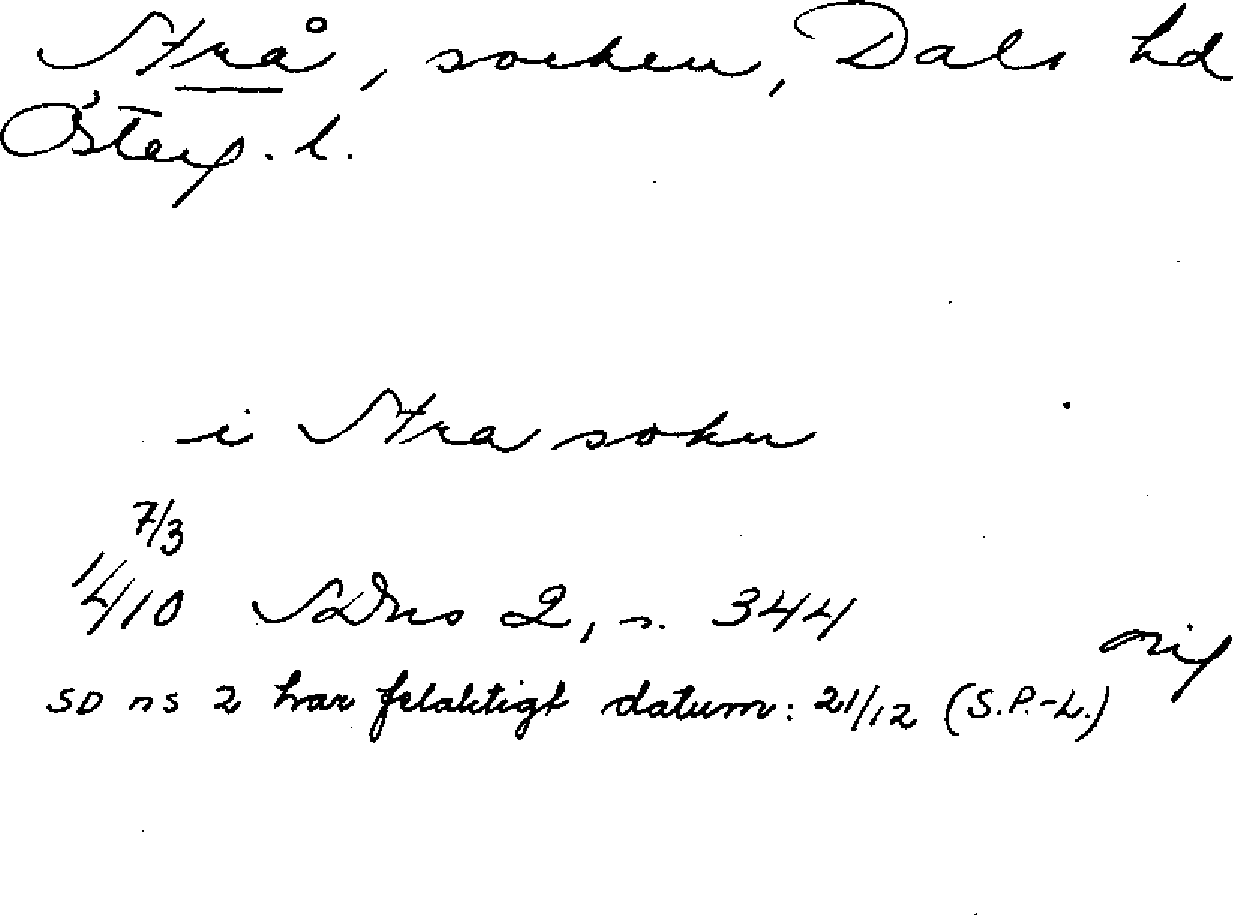 Strå, socken, Dals hd
Österg. l.
i Stra sokn
7/3
1410 SDns 2, s. 344
orig
SD ns 2 har felaktigt datum: 21/12 (S.P.-L.)